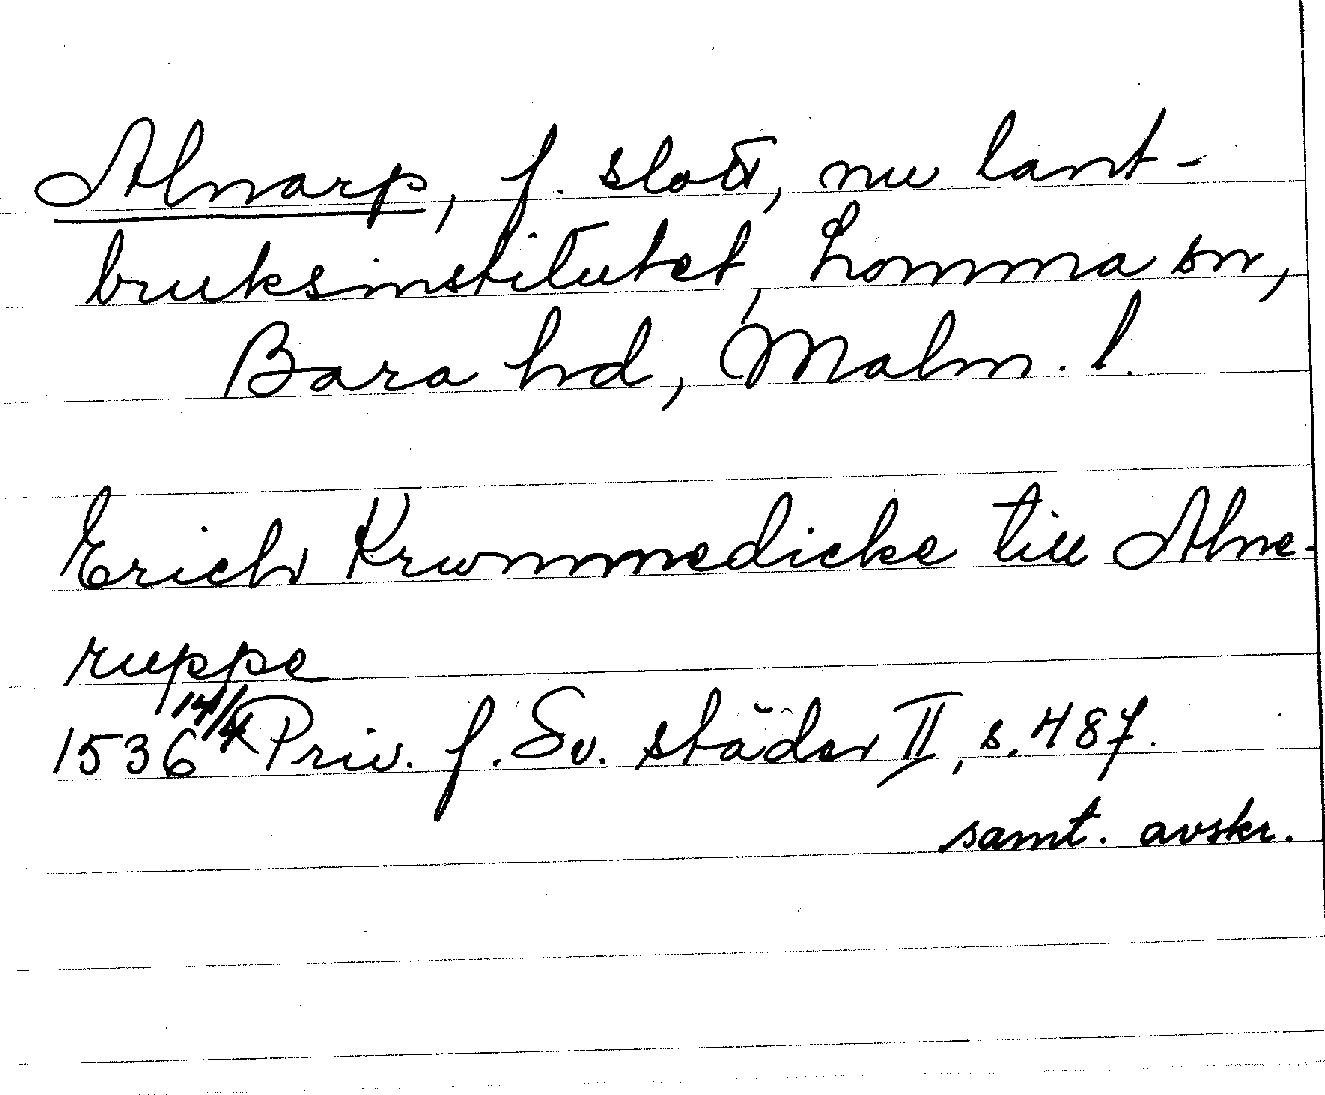 Alnarp, f. slott, nu lant-
bruksinstitutet, Lomma sn,
Bara hd, Malm. l.
Erich Krummedicke till Alne-
ruppe
1536 14/4 Priv. f. Sv. städer II, s. 487.
samt. avskr.